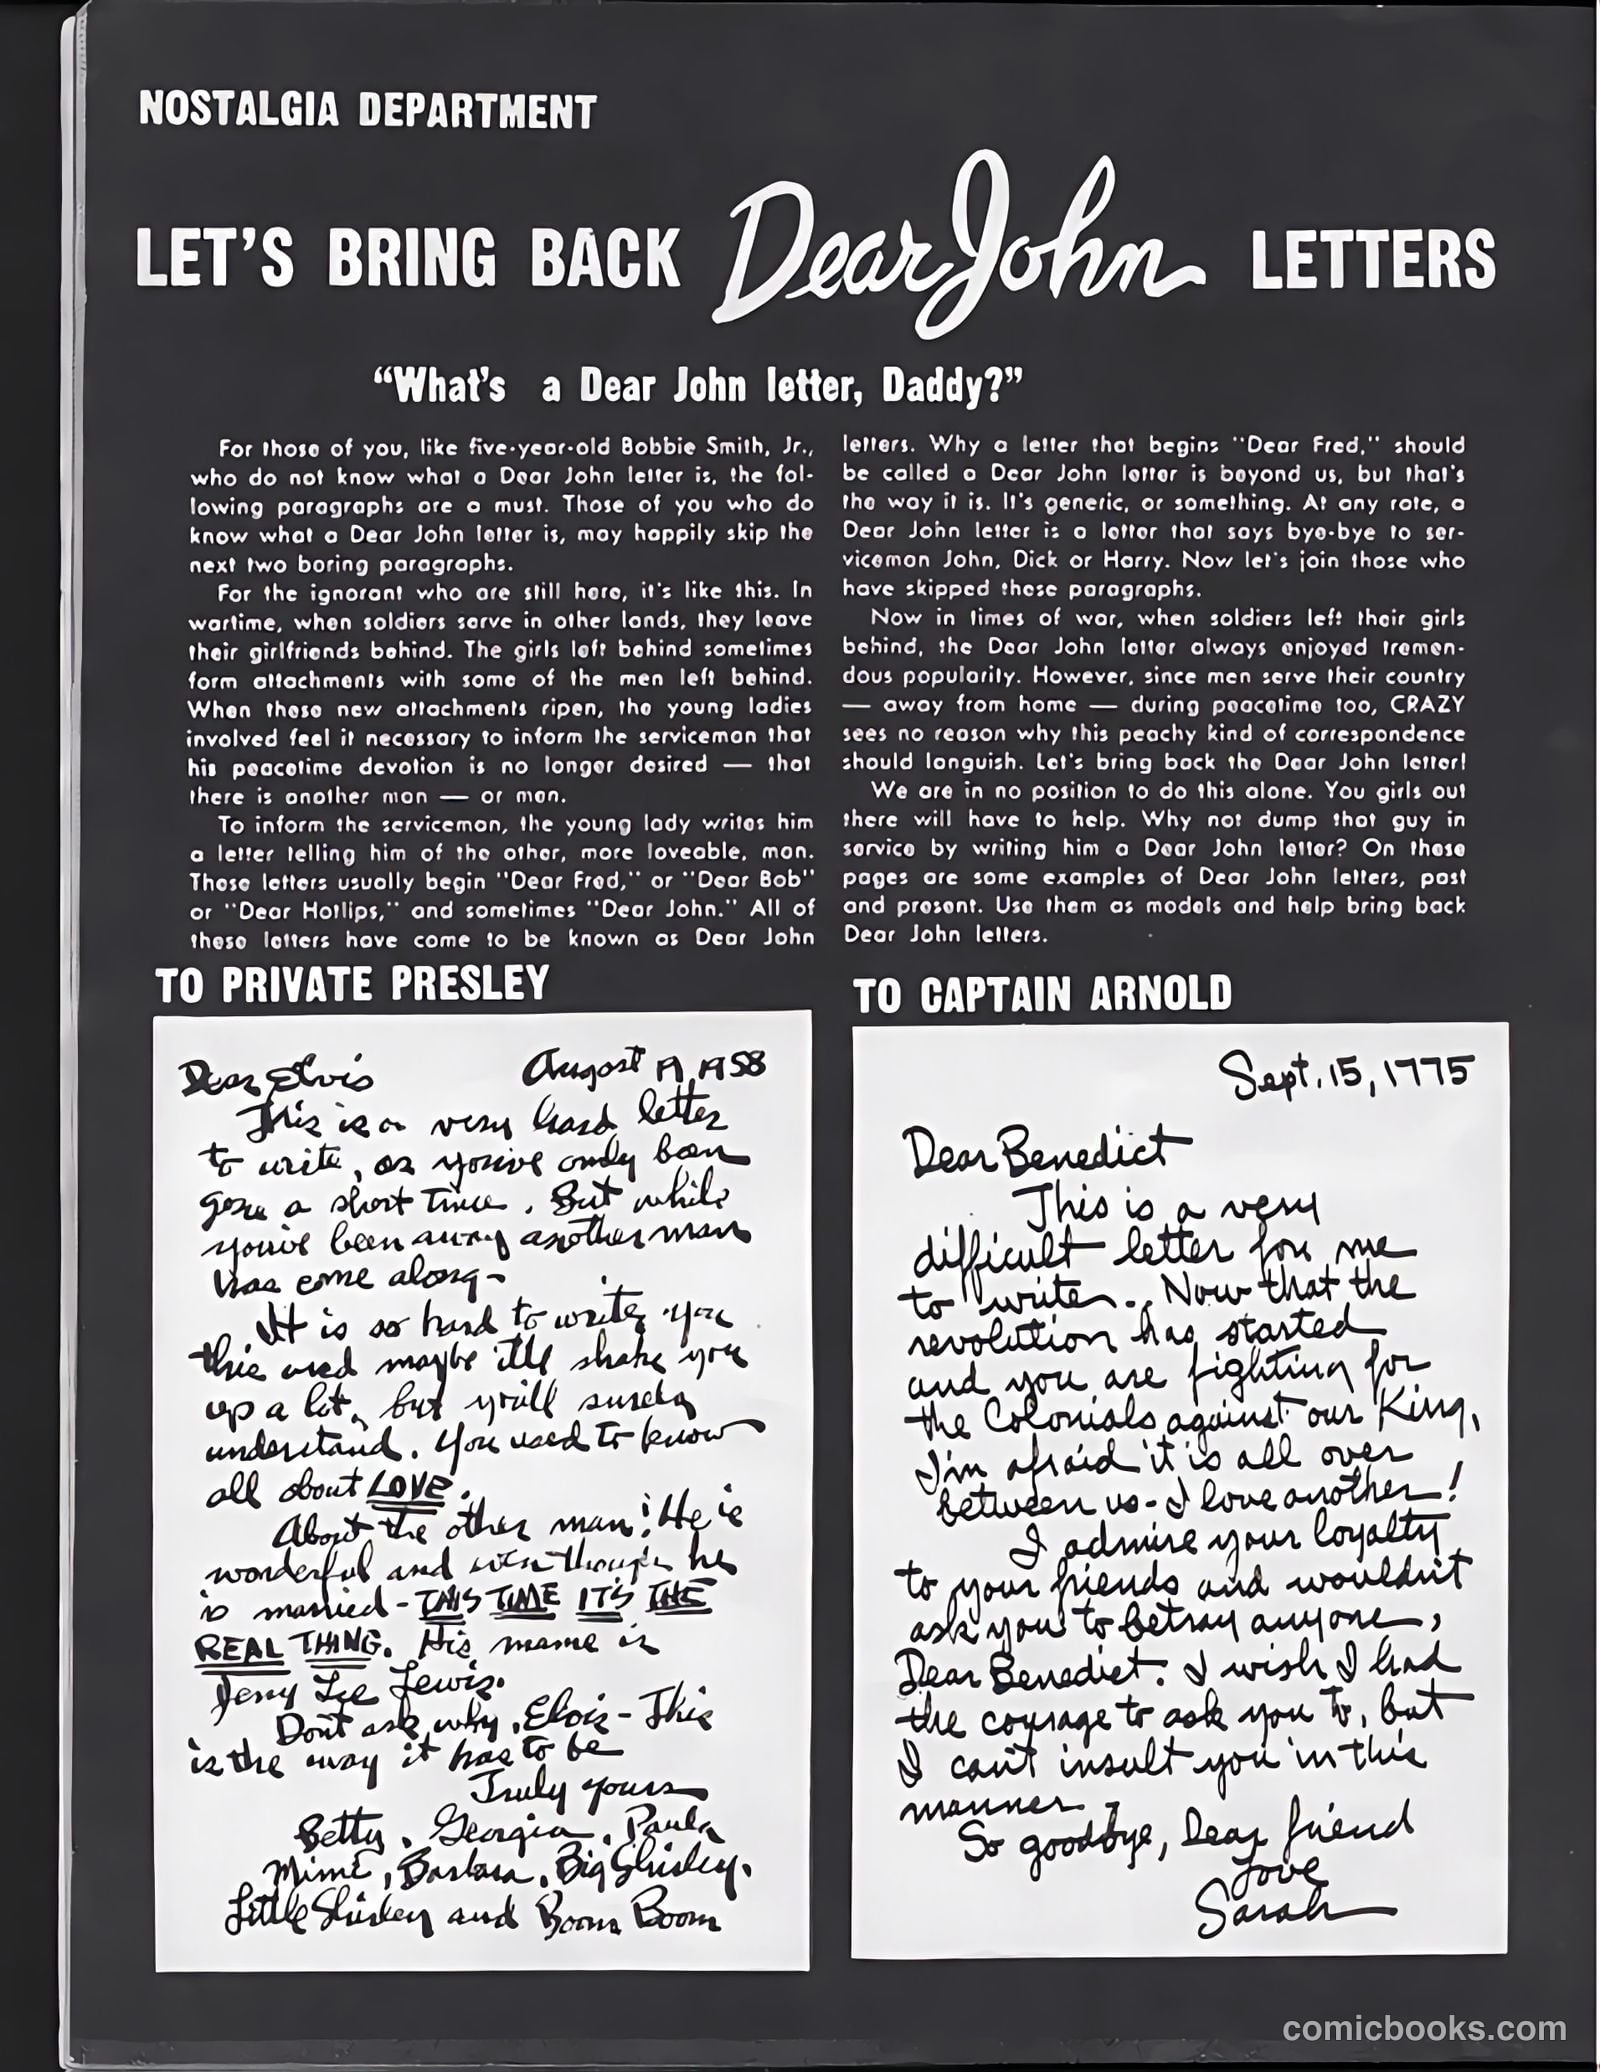 NOSTALGIA DEPARTMENT
LET'S BRING BACK Dear John LETTERS
“What's a Dear John letter, Daddy?”
For those of you, like five-year-old Bobbie Smith, Jr.,
who do not know what a Dear John letter is, the fol-
lowing paragraphs are a must. Those of you who do
know what a Dear John letter is, may happily skip the
next two boring paragraphs.
For the ignorant who are still here, it's like this. In
wartime, when soldiers serve in other lands, they leave
their girlfriends behind. The girls left behind sometimes
form attachments with some of the men left behind.
When these new attachments ripen, the young ladies
involved feel it necessary to inform the serviceman that
his peacetime devotion is no longer desired — that
there is another man — or men.
To inform the serviceman, the young lady writes him
a letter telling him of the other, more loveable, man.
These letters usually begin "Dear Fred," or "Dear Bob"
or "Dear Hotlips," and sometimes "Dear John." All of
these letters have come to be known as Dear John
letters. Why a letter that begins "Dear Fred," should
be called a Dear John letter is beyond us, but that's
the way it is. It's generic, or something. At any rate, a
Dear John letter is a letter that says bye-bye to ser-
viceman John, Dick or Harry. Now let's join those who
have skipped these paragraphs.
Now in times of war, when soldiers left their girls
behind, the Dear John letter always enjoyed tremen-
dous popularity. However, since men serve their country
— away from home — during peacetime too, CRAZY
sees no reason why this peachy kind of correspondence
should languish. Let's bring back the Dear John letter!
We are in no position to do this alone. You girls out
there will have to help. Why not dump that guy in
service by writing him a Dear John letter? On these
pages are some examples of Dear John letters, past
and present. Use them as models and help bring back
Dear John letters.
TO PRIVATE PRESLEY
August 19, 1958
Dear Elvis
This is a very hard letter
to write, as you've only been
gone a short time. But while
you've been away another man
has come along-
It is so hard to write you
this and maybe it'll shake you
up a lot, but you'll surely
understand. You used to know
all about LOVE.
About the other man! He is
wonderful and even though he
is married - THIS TIME IT'S THE
REAL THING. His name is
Jerry Lee Lewis.
Don't ask why, Elvis - This
is the way it has to be
Truly yours
Betty, Georgia, Paula
Mimi, Barbara, Big Shirley,
Little Shirley and Boom Boom
TO CAPTAIN ARNOLD
Sept. 15, 1775
Dear Benedict
This is a very
difficult letter for me
to write. Now that the
revolution has started
and you are fighting for
the Colonials against our King,
I'm afraid it is all over
between us - I love another!
I admire your loyalty
to your friends and wouldn't
ask you to betray anyone,
Dear Benedict. I wish I had
the courage to ask you to, but
I can't insult you in this
manner -
So goodbye, Dear friend
Love
Sarah
comicbooks.com